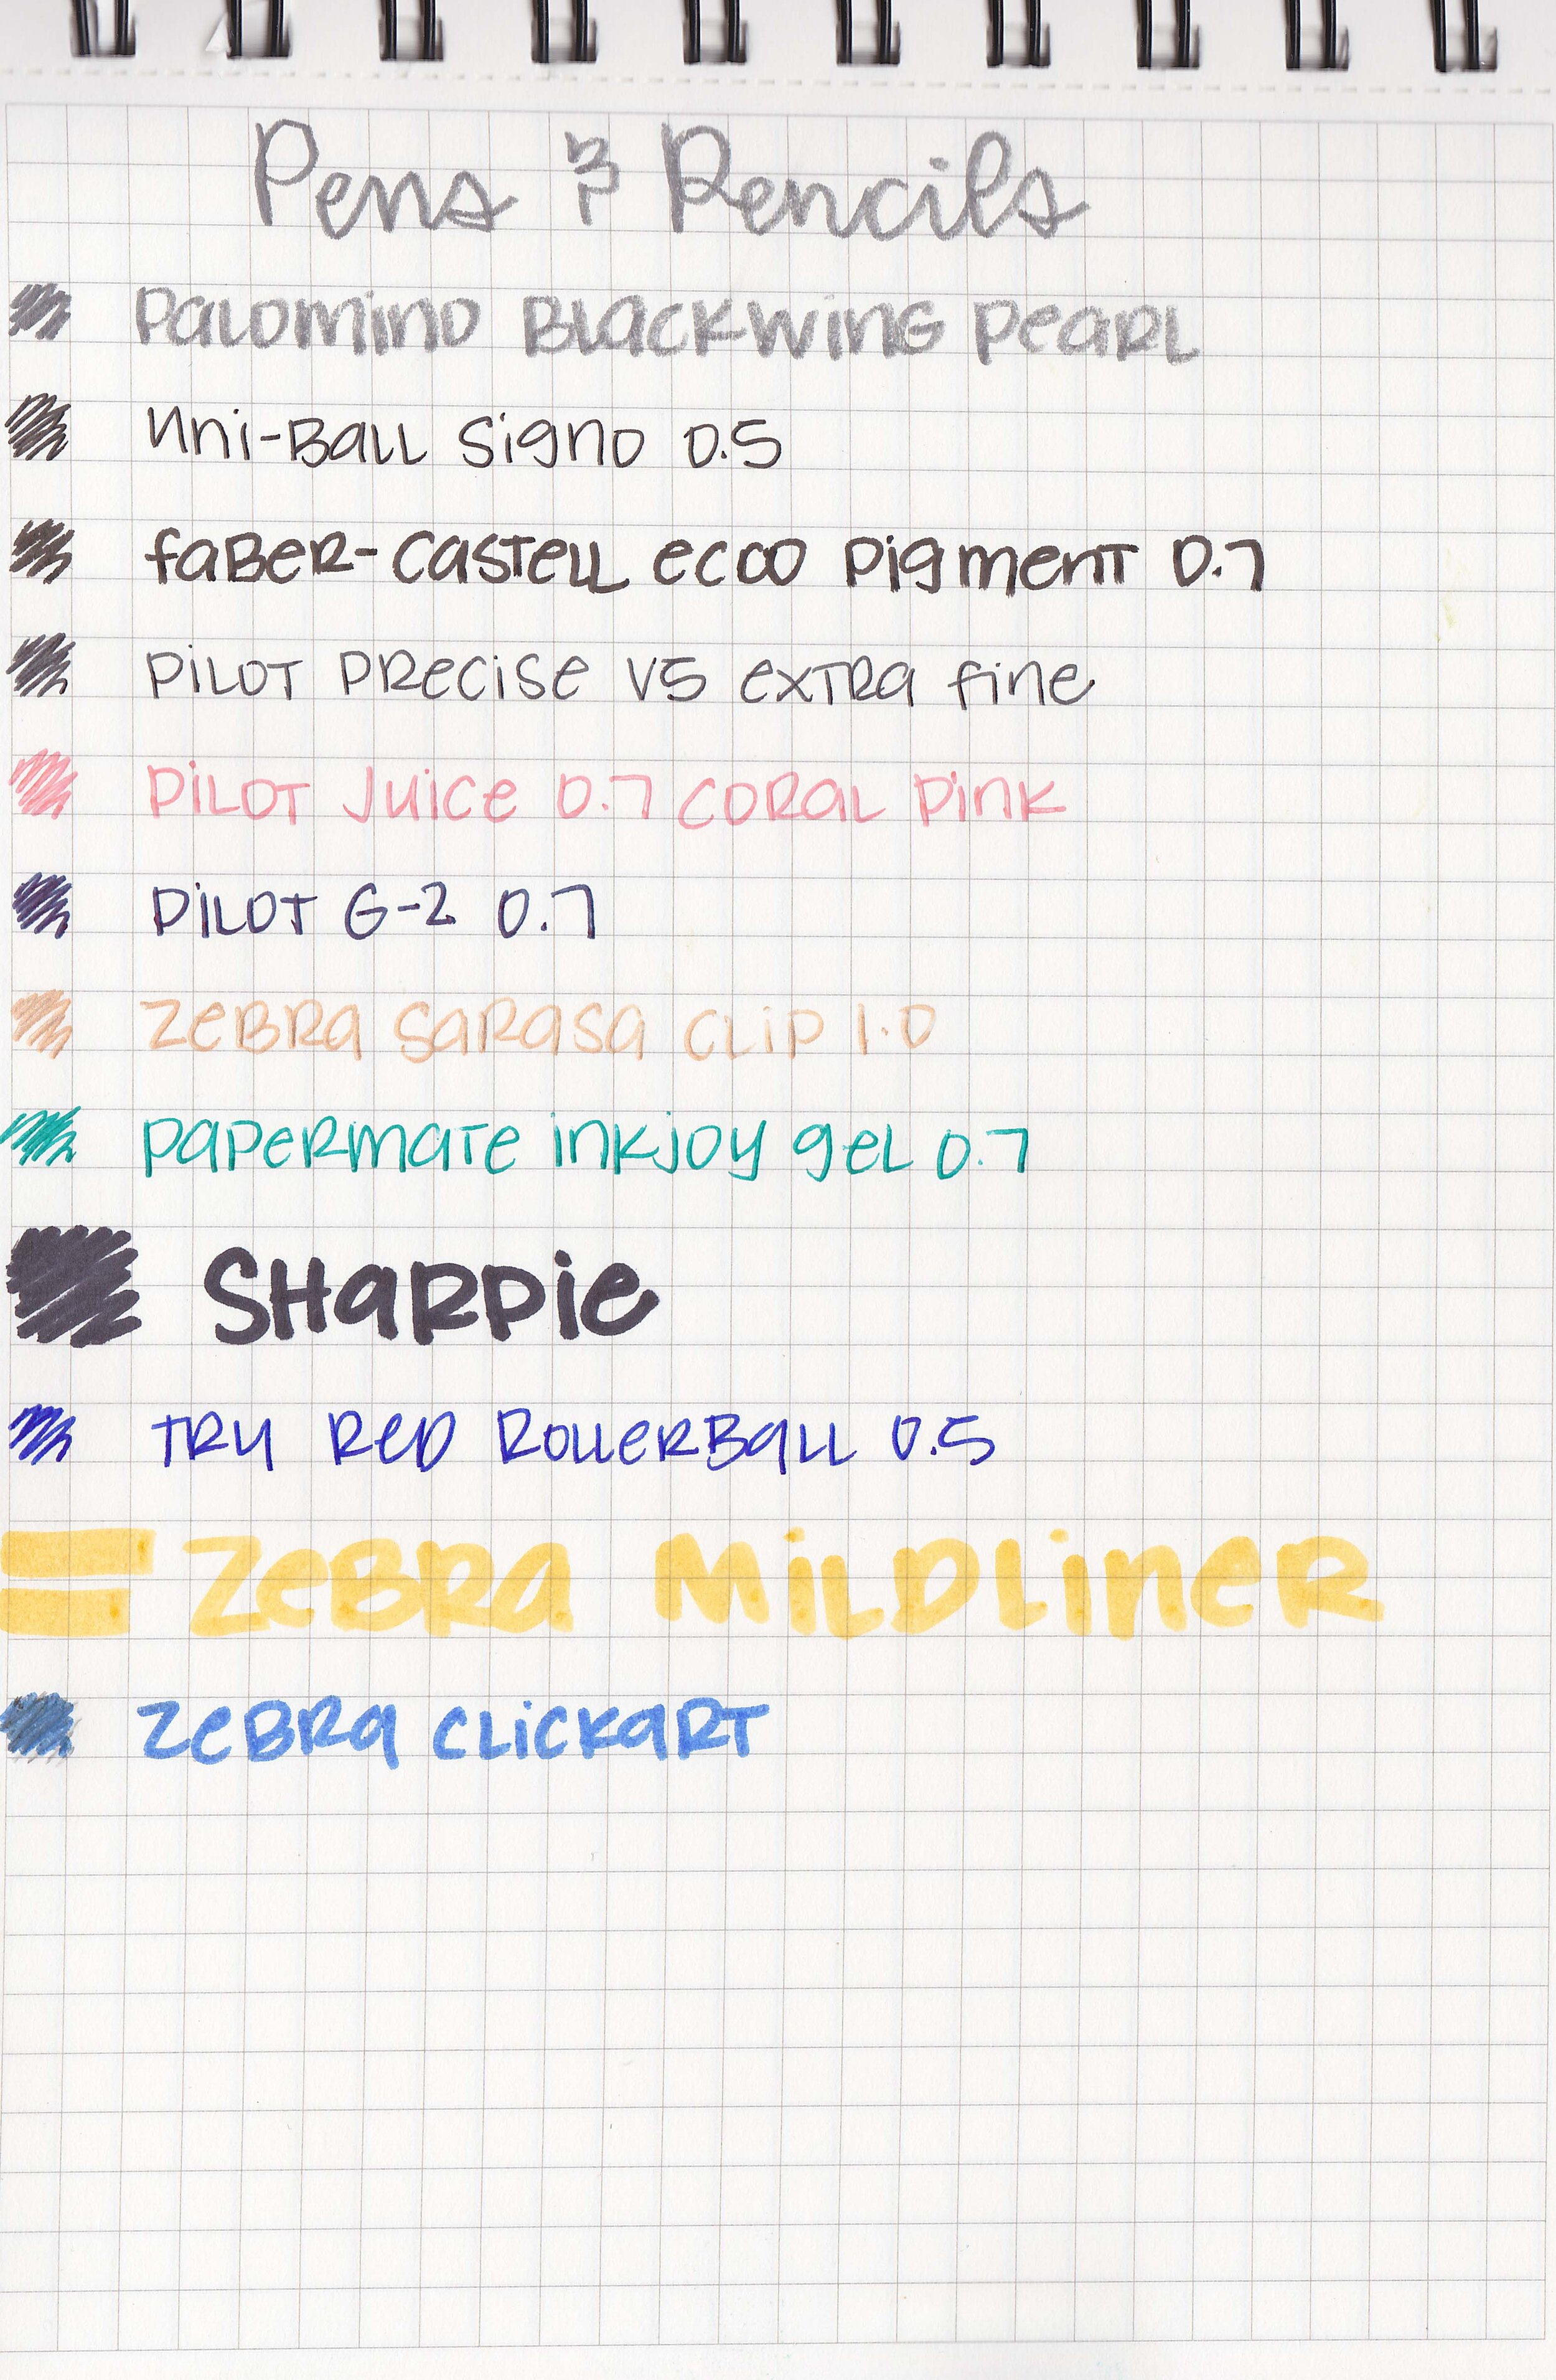 Pens & Pencils
Palomino Blackwing Pearl
uni-Ball Signo 0.5
Faber-Castell ecco pigment 0.7
Pilot Precise V5 extra fine
Pilot Juice 0.7 Coral Pink
Pilot G-2 0.7
Zebra Sarasa Clip 1.0
Papermate inkjoy gel 0.7
Sharpie
Try Red Rollerball 0.5
Zebra Mildliner
Zebra Clickart